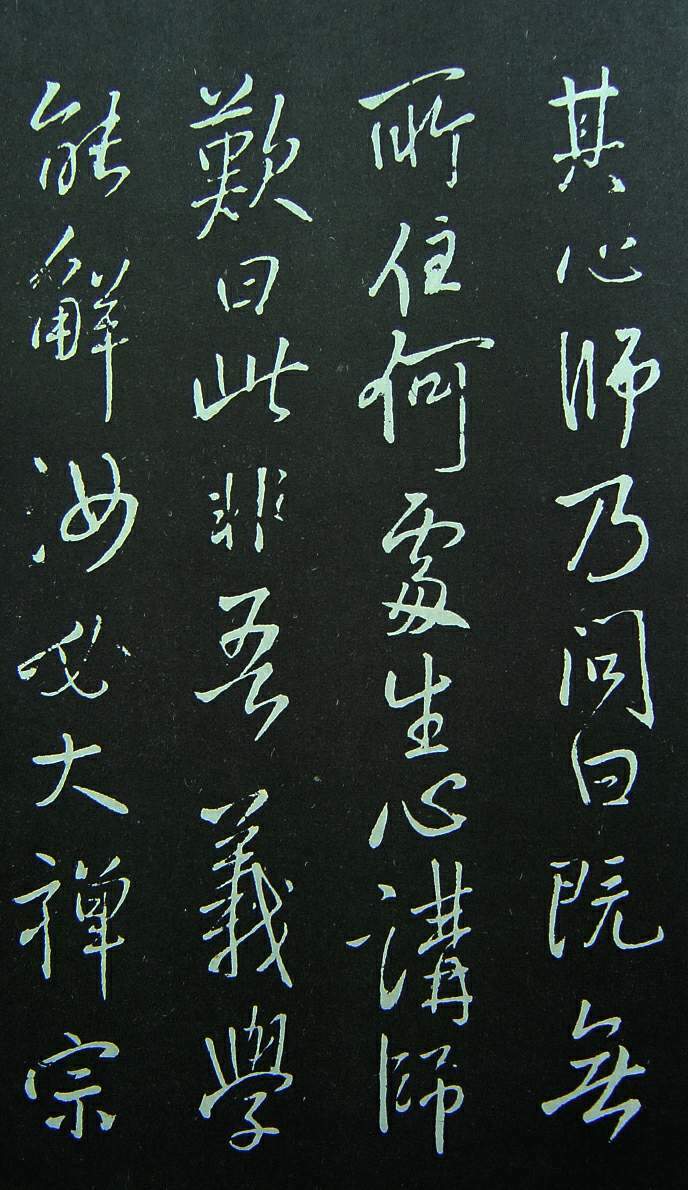 其心師乃問曰既無
所住何處生心講師
歎曰此非吾義學
能解汝大禪宗